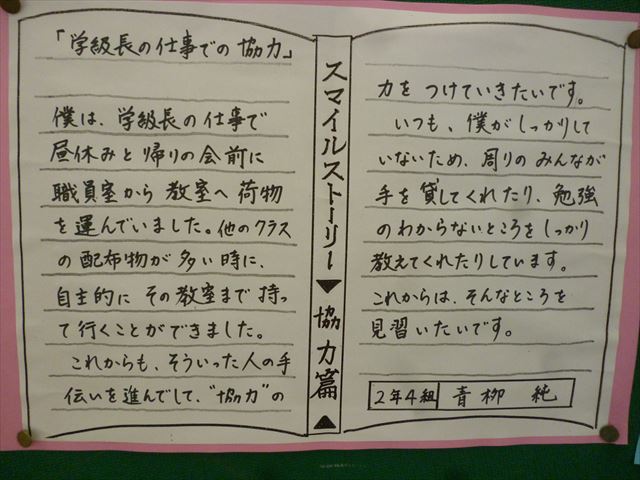 「学級長の仕事での協力」
僕は、学級長の仕事で
昼休みと帰りの会前に
職員室から教室へ荷物
を運んでいました。他のクラス
の配布物が多い時に、
自主的にその教室まで持っ
て行くことができました。
これからも、そういった人の手
伝いを進んでして、“協力”の
スマイルストーリー▼協力篇▲
力をつけていきたいです。
いつも、僕がしっかりして
いないため、周りのみんなが
手を貸してくれたり、勉強
のわからないところをしっかり
教えてくれたりしています。
これからは、そんなところを
見習いたいです。
2年4組 青柳 純